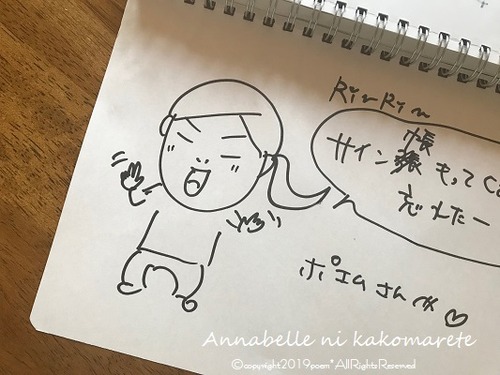 RinRin
サイン帳もってく
忘れたー
ポエムさんへ♡
Annabelle ni kakomarete
©copyright2019poem*AllRightsReserved